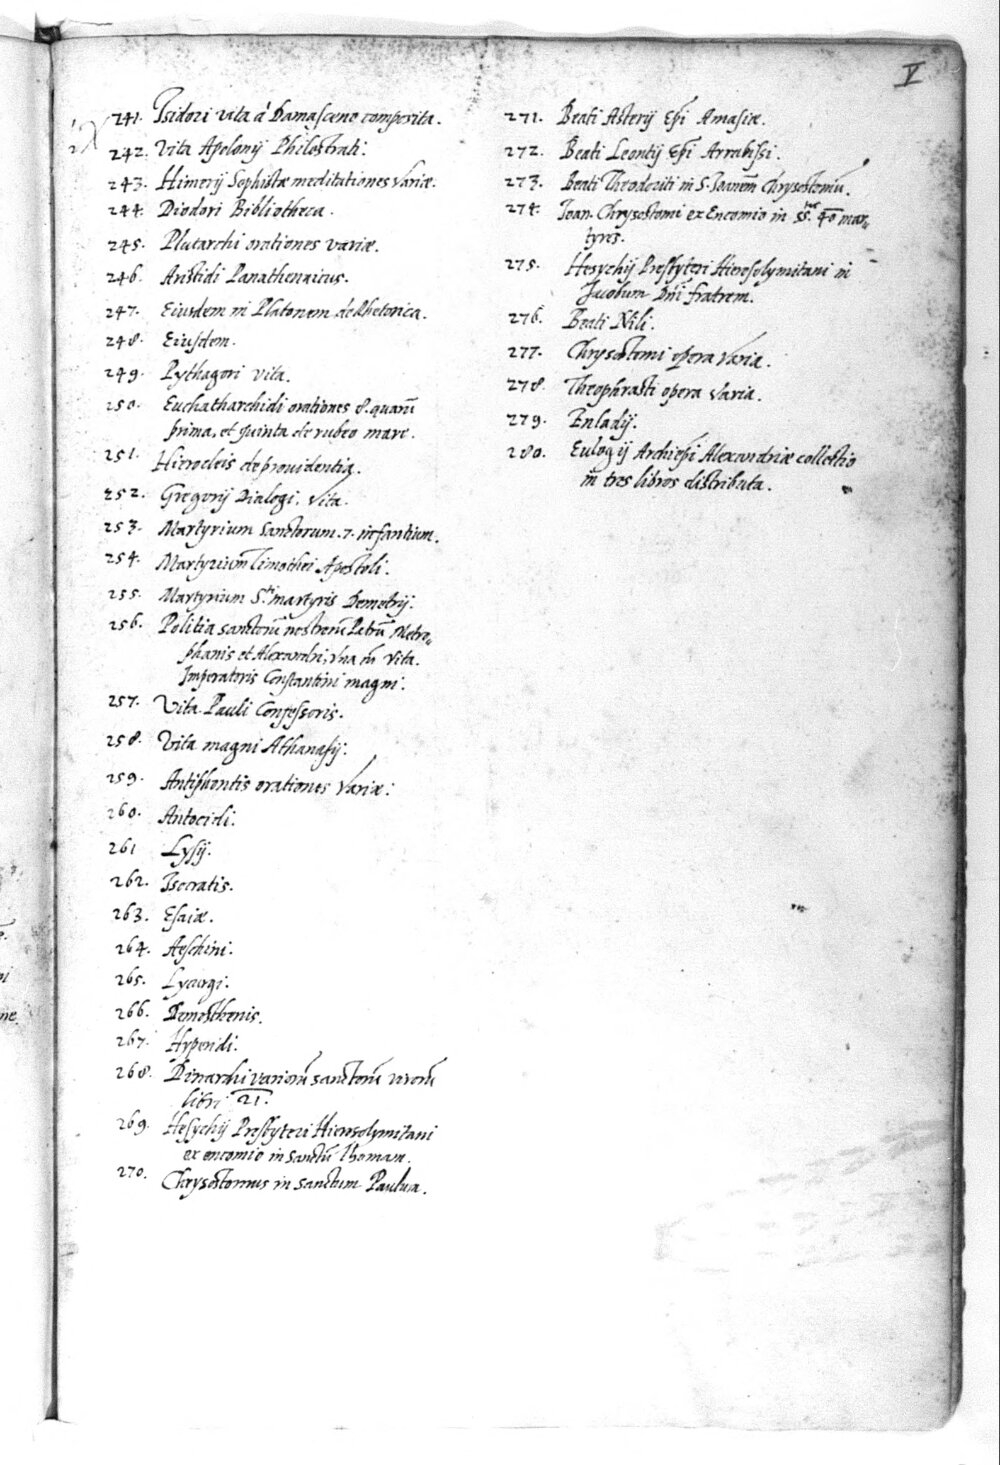 V
241. Isidori vita á Damasceno composita.
242. Vita Apolonij Philostrati.
243. Himerij Sophistæ meditationes variæ.
244. Diodori Bibliotheca.
245. Plutarchi orationes variæ.
246. Aristidi Panathenaicus.
247. Eiusdem in Platonem de Rhetorica.
248. Eiusdem.
249. Pythagori vita.
250. Euchatharchidi orationes 8. quarũ
prima, et quinta de rubro mare.
251. Hierocleis de providentia.
252. Gregorij Dialogi, vita.
253. Martyrium Sanctorum .7. infantium.
254. Martyrium Timothei Apostoli.
255. Martyrium S.ti martyris Demetrij.
256. Politia sanctorũ nostrorũ Patrũ Metro„
phanis et Alexandri, vna cũ vita
Imperatoris Constantini magni.
257. Vita Pauli Confessoris.
258. Vita magni Athanasij.
259. Antiphontis orationes variæ:
260. Antocidi.
261 Lysij.
262. Isocratis.
263. Esaiæ.
264. Aeschini.
265. Lycurgi.
266. Demosthenis.
267. Hyperidi.
268. Dinarchi variorũ sanctorũ virorũ
libri 21.
269. Hesychij Presbyteri Hierosolymitani
ex encomio in sanctũ Thomam.
270. Chrysostomus in sanctum Paulum.
271. Beati Asterij Epĩ Amasiæ.
272. Beati Leontij Epĩ Arrabissi.
273. Beati Theodoriti in S. Ioanem Chrysostomũ.
274. Ioan. Chrysostomi ex Encomio in ss.tos 40 mar„
tyres.
275. Hesychij Presbyteri Hierosolymitani in
Jacobum Dñi fratrem.
276. Beati Nili.
277. Chrysostomi opera varia.
278. Theophrasti opera varia.
279. Enladij.
280. Eulogij Archiepĩ Alexandriæ collectio
in tres libros distributa.